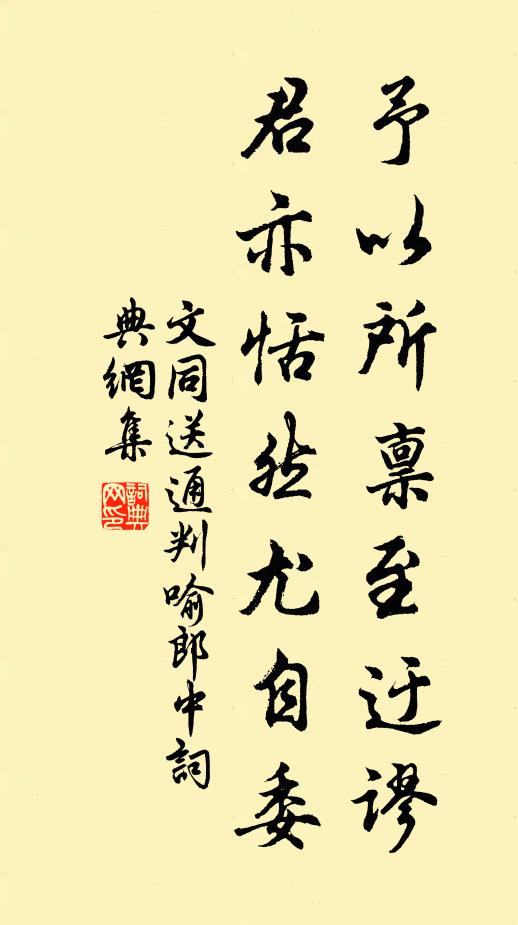 予以所禀至迂谬
君亦恬然尤自委
文同送通判喻郎中詞
典網集
詞典网印